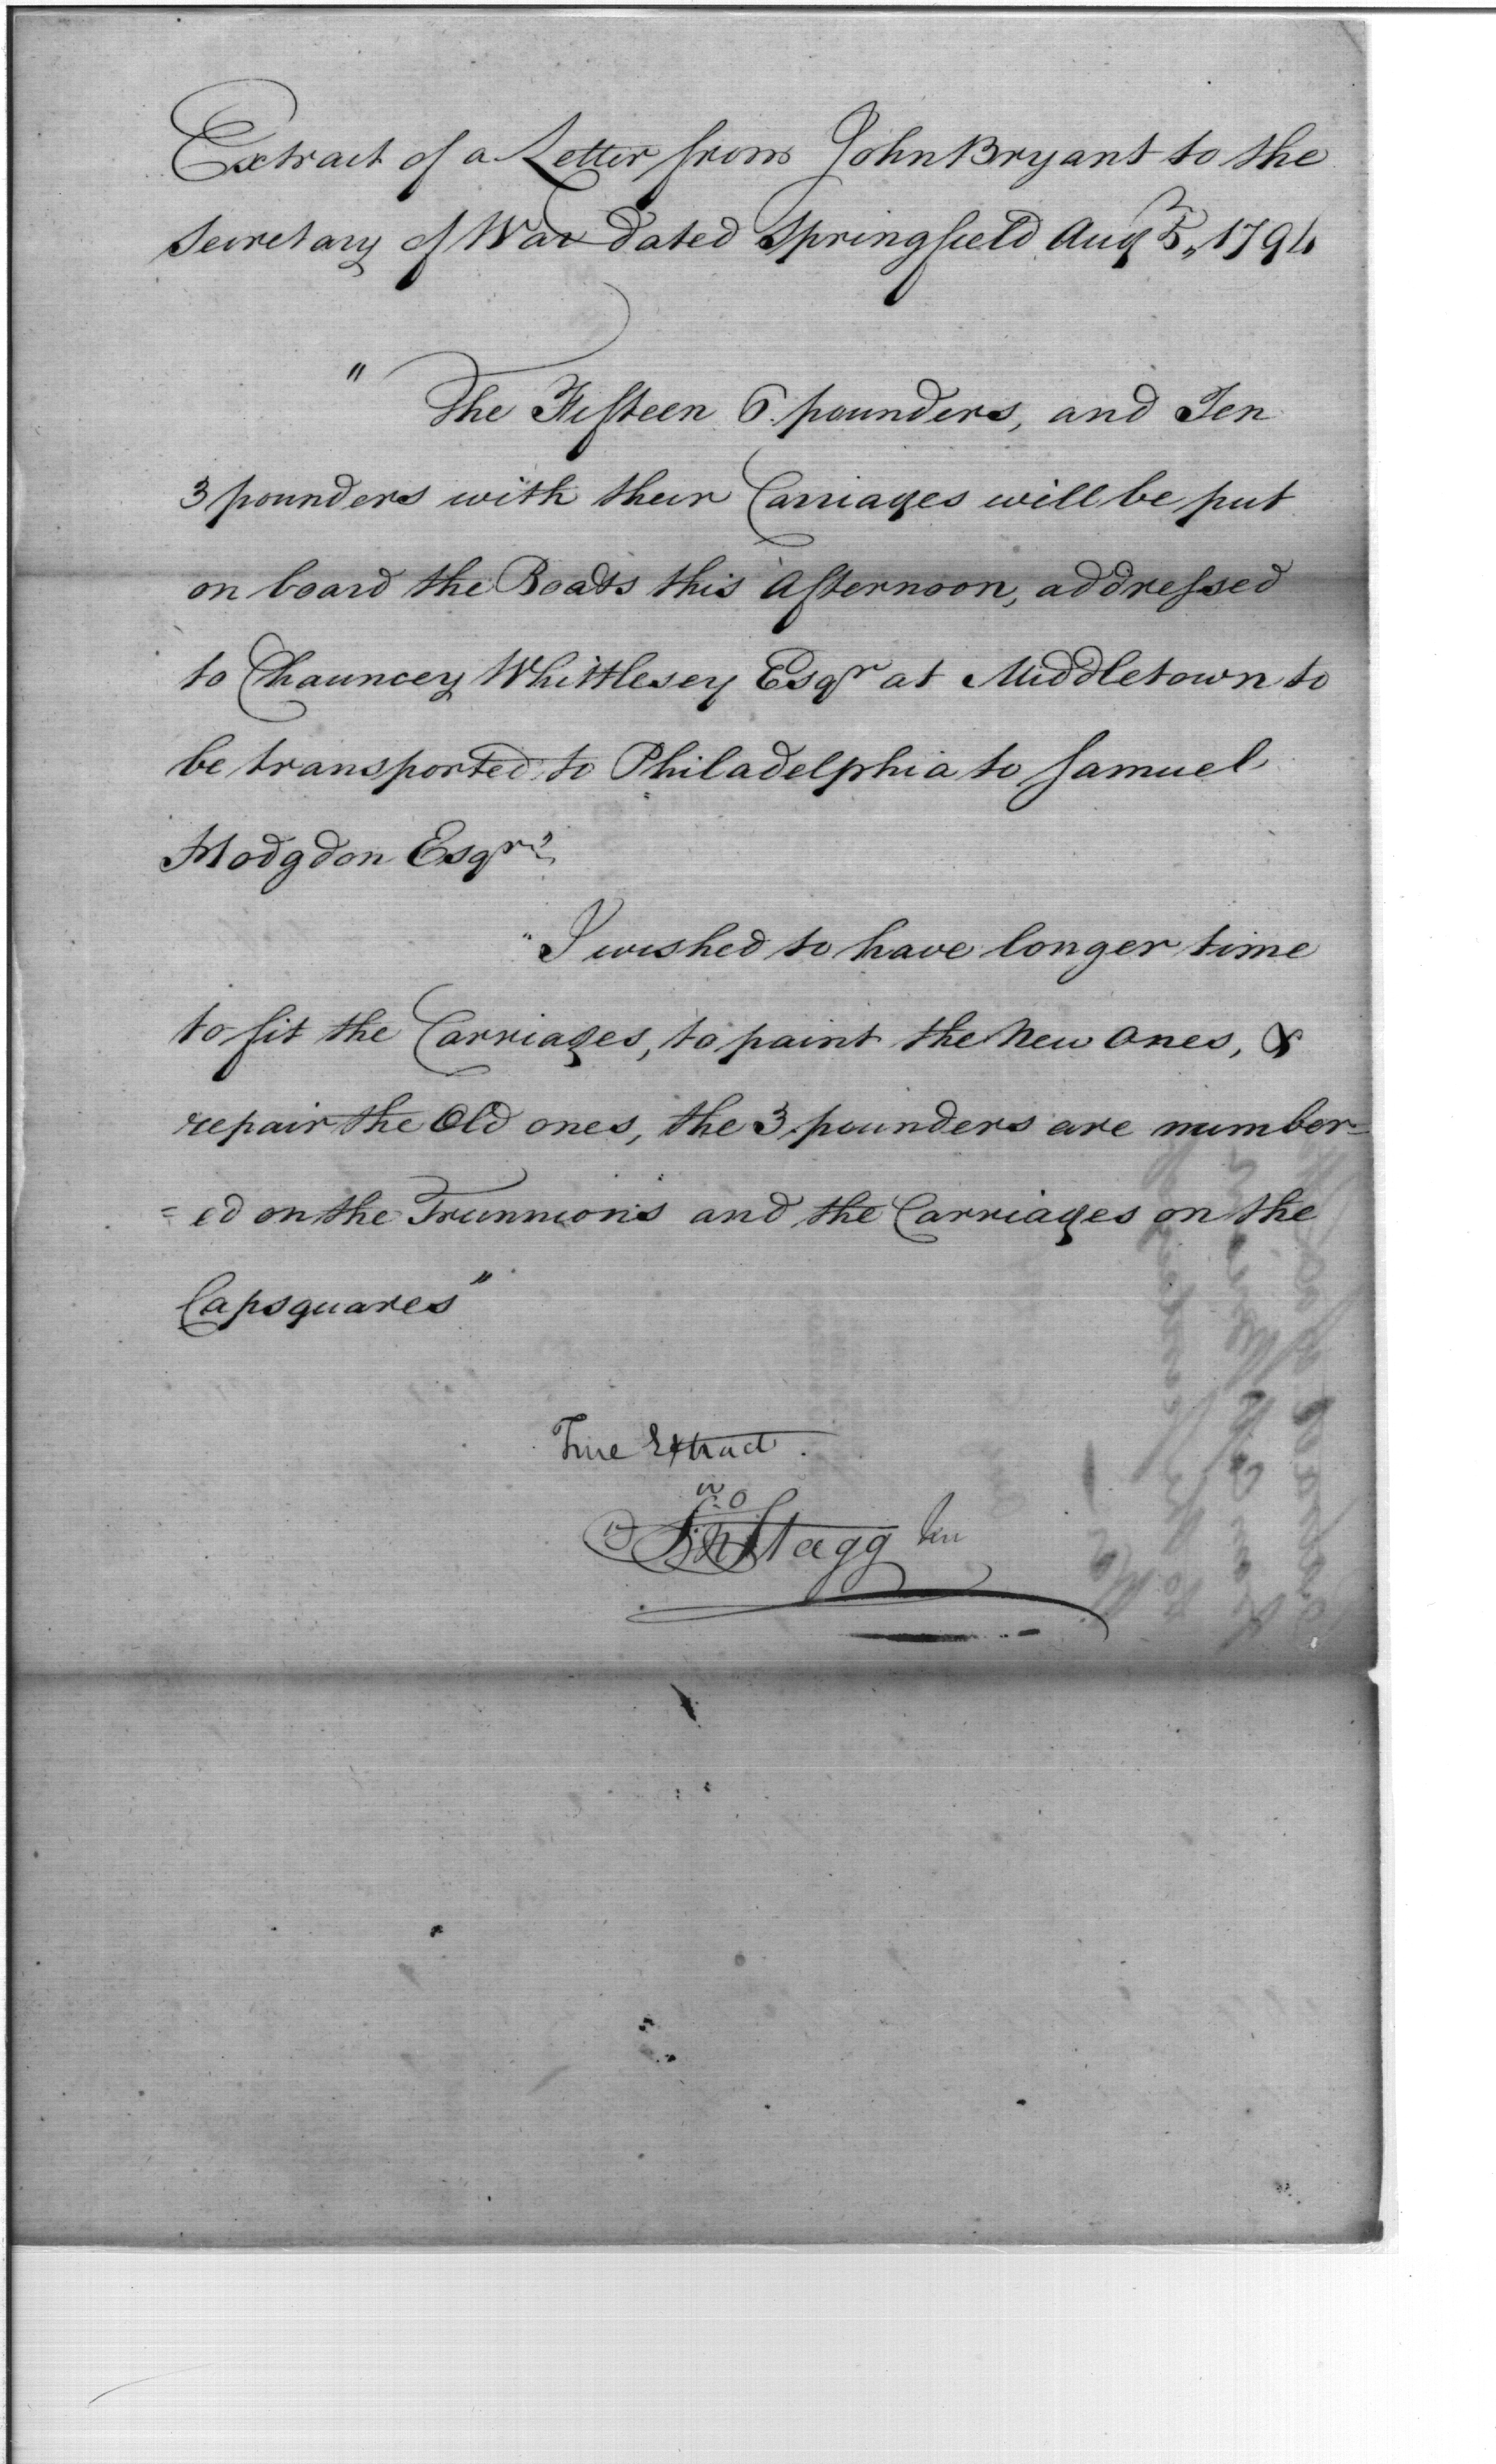 Extract of a Letter from John Bryant to the
Secretary of War dated Springfield Augt 5, 1794
" The Fifteen 6 pounders, and Ten
3 pounders with their Carriages will be put
on board the Boats this Afternoon, addressed
to Chauncey Whittlesey Esqr at Middletown to
be transported to Philadelphia to Samuel
Hodgdon Esqr"
"I wished to have longer time
to fit the Carriages, to paint the New Ones, &
repair the Old ones, the 3 pounders are number=
=ed on the Trunnions and the Carriages on the
Capsquares"
True Extract.
Jno Stagg Jun